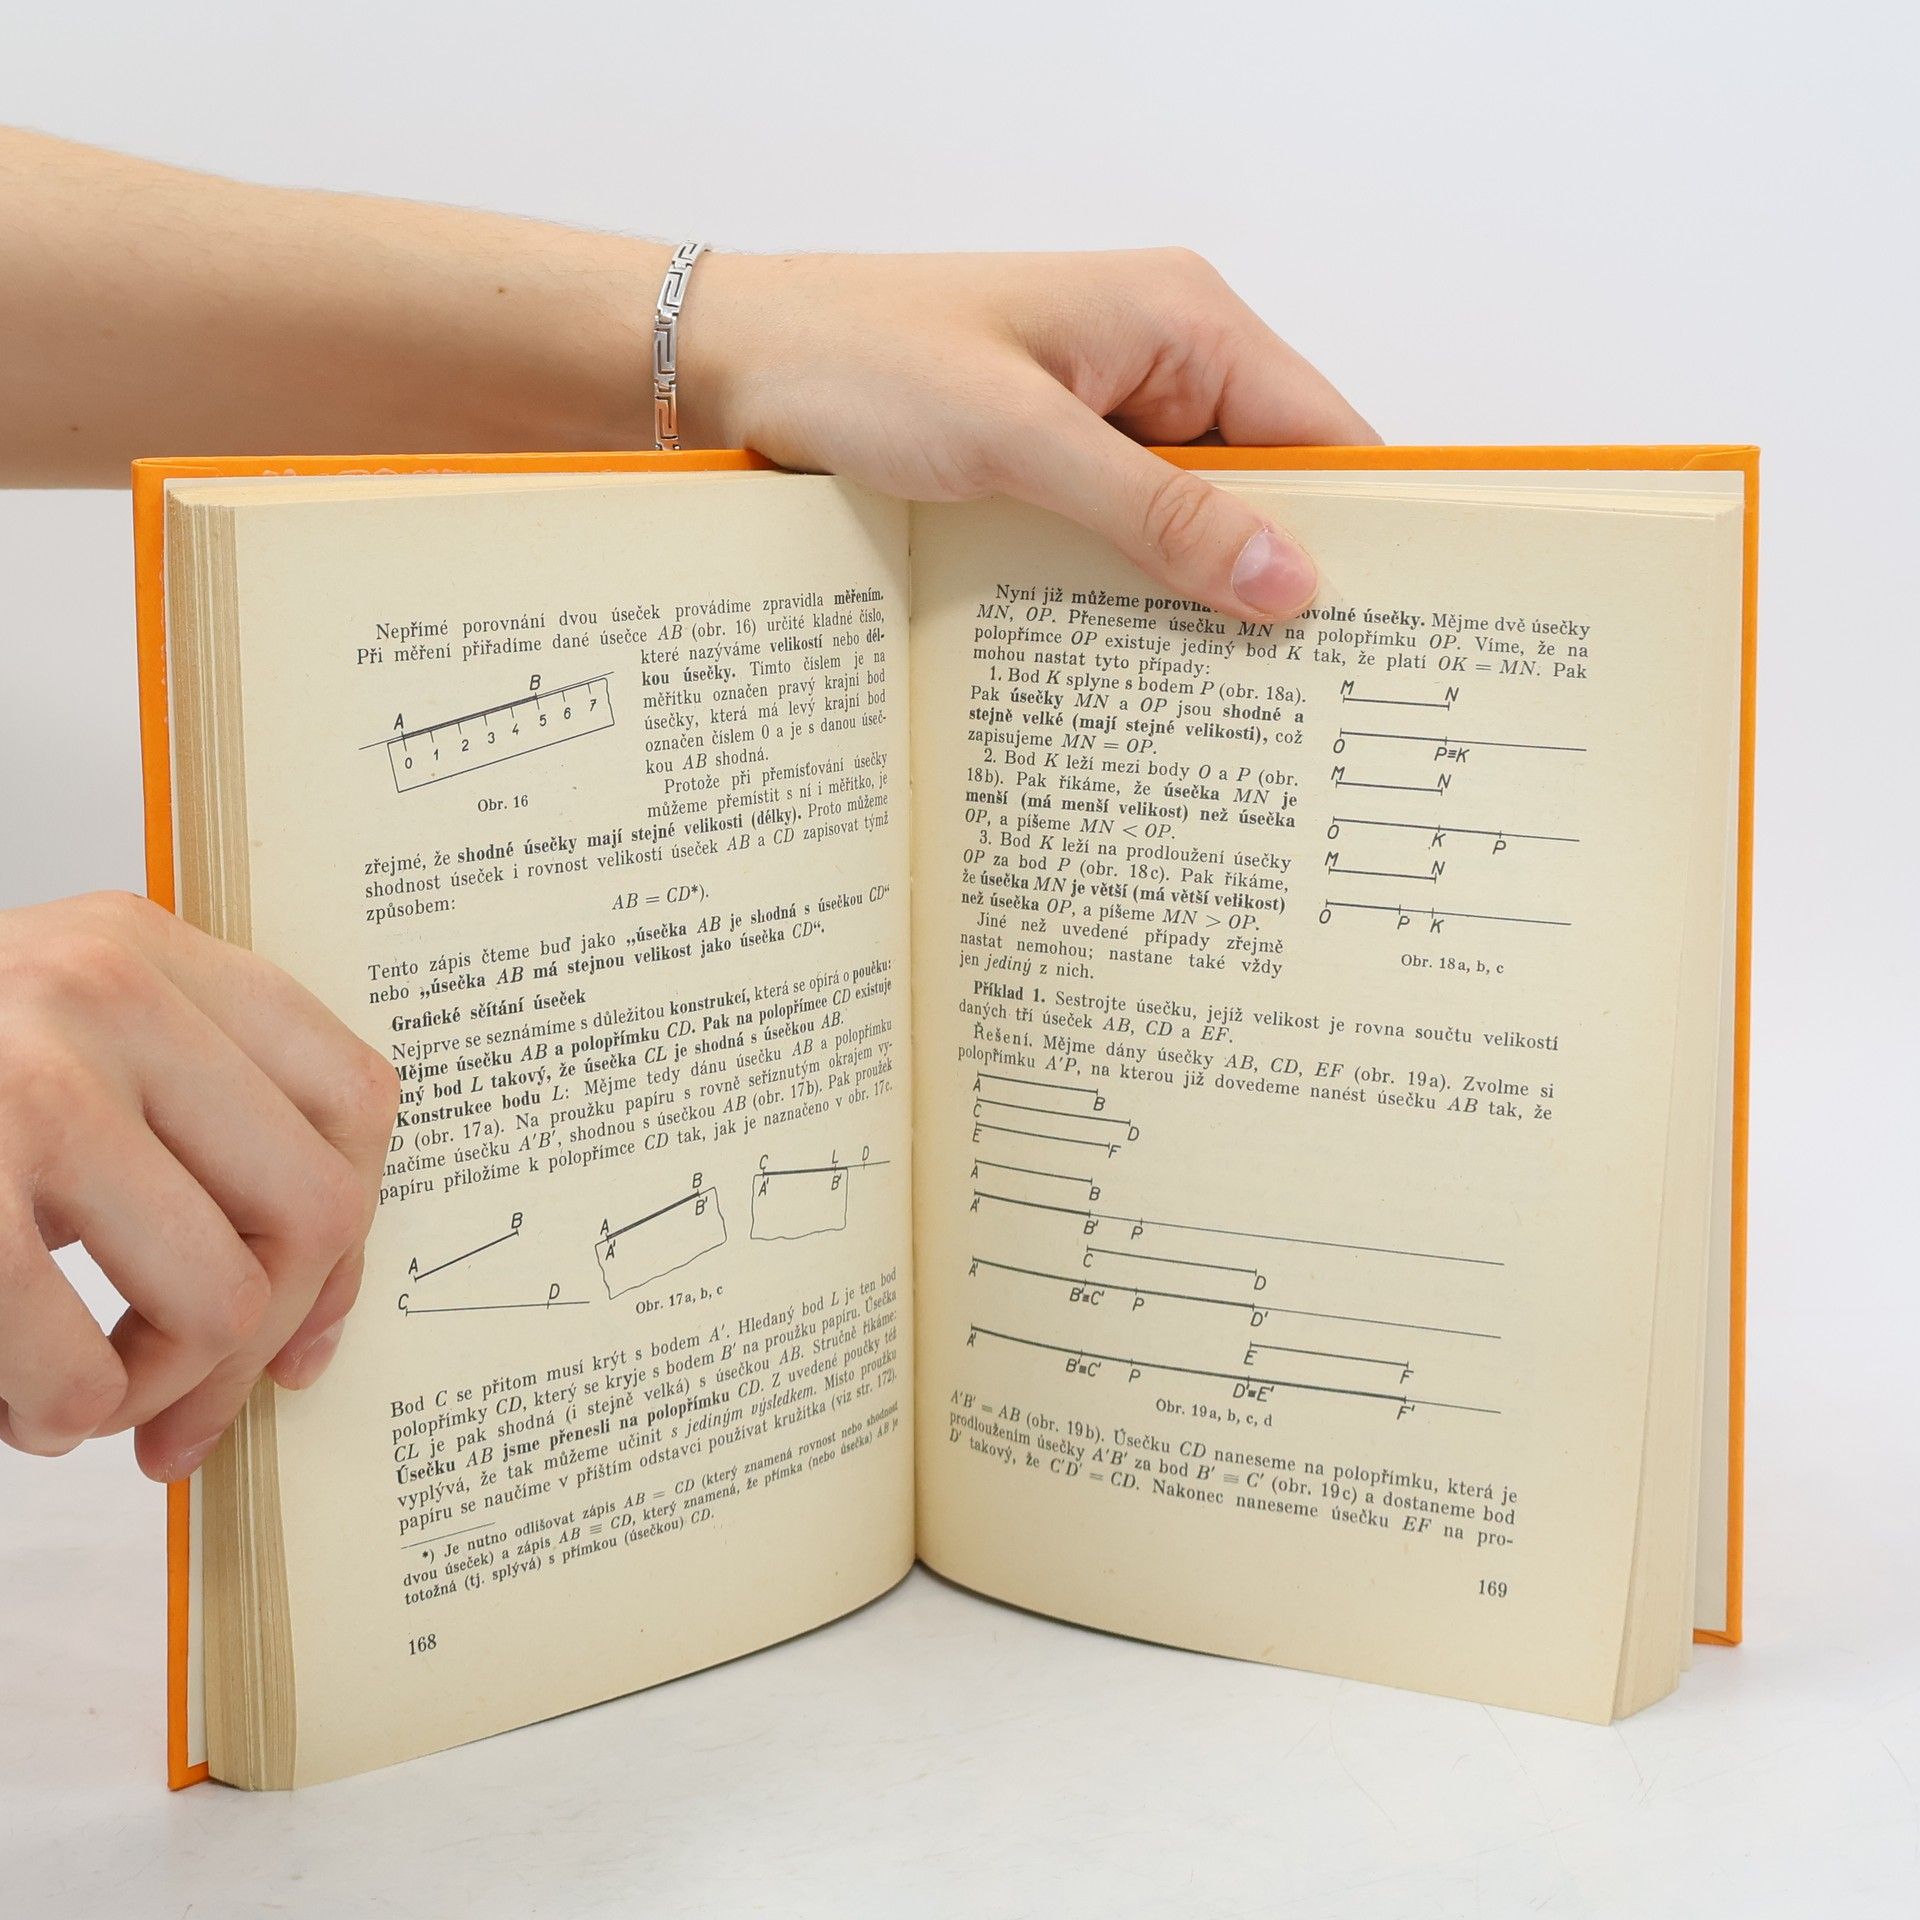 Nepřímé porovnání dvou úseček provádíme zpravidla měřením.
Při měření přiřadíme dané úsečce AB (obr. 16) určité kladné číslo,
které nazýváme velikostí nebo dél-
kou úsečky. Tímto číslem je na
měřítku označen pravý krajní bod
úsečky, která má levý krajní bod
označen číslem 0 a je s danou úseč-
kou AB shodná.
Protože při přemísťování úsečky
můžeme přemístit s ní i měřítko, je
A B
0 1 2 3 4 5 6 7
Obr. 16
zřejmé, že shodné úsečky mají stejné velikosti (délky). Proto můžeme
shodnost úseček i rovnost velikostí úseček AB a CD zapisovat týmž
způsobem:
AB = CD*).
Tento zápis čteme buď jako „úsečka AB je shodná s úsečkou CD“
nebo „úsečka AB má stejnou velikost jako úsečka CD“.
Grafické sčítání úseček
Nejprve se seznámíme s důležitou konstrukcí, která se opírá o poučku:
Mějme úsečku AB a polopřímku CD. Pak na polopřímce CD existuje
iný bod L takový, že úsečka CL je shodná s úsečkou AB.
Konstrukce bodu L: Mějme tedy dánu úsečku AB a polopřímku
D (obr. 17a). Na proužku papíru s rovně seříznutým okrajem vy-
načíme úsečku A′B′, shodnou s úsečkou AB (obr. 17b). Pak proužek
papíru přiložíme k polopřímce CD tak, jak je naznačeno v obr. 17c.
A B
C D
A B
A′ B′
C L D
A′ B′
Obr. 17a, b, c
Bod C se přitom musí krýt s bodem A′. Hledaný bod L je ten bod
polopřímky CD, který se kryje s bodem B′ na proužku papíru. Úsečka
CL je pak shodná (i stejně velká) s úsečkou AB. Stručně říkáme:
Úsečku AB jsme přenesli na polopřímku CD. Z uvedené poučky též
vyplývá, že tak můžeme učinit s jediným výsledkem. Místo proužku
papíru se naučíme v příštím odstavci používat kružítka (viz str. 172).
*) Je nutno odlišovat zápis AB = CD (který znamená rovnost nebo shodnost
dvou úseček) a zápis AB ≡ CD, který znamená, že přímka (nebo úsečka) AB je
totožná (tj. splývá) s přímkou (úsečkou) CD.
168
Nyní již můžeme porovna ovolné úsečky. Mějme dvě úsečky
MN, OP. Přeneseme úsečku MN na polopřímku OP. Víme, že na
polopřímce OP existuje jediný bod K tak, že platí OK = MN. Pak
mohou nastat tyto případy:
1. Bod K splyne s bodem P (obr. 18a).
Pak úsečky MN a OP jsou shodné a
stejně velké (mají stejné velikosti), což
zapisujeme MN = OP.
2. Bod K leží mezi body O a P (obr.
18b). Pak říkáme, že úsečka MN je
menší (má menší velikost) než úsečka
OP, a píšeme MN < OP.
3. Bod K leží na prodloužení úsečky
OP za bod P (obr. 18c). Pak říkáme,
že úsečka MN je větší (má větší velikost)
než úsečka OP, a píšeme MN > OP.
Jiné než uvedené případy zřejmě
nastat nemohou; nastane také vždy
jen jediný z nich.
M N
O P≡K
M N
O K P
M N
O P K
Obr. 18a, b, c
Příklad 1. Sestrojte úsečku, jejíž velikost je rovna součtu velikostí
daných tří úseček AB, CD a EF.
Řešení. Mějme dány úsečky AB, CD, EF (obr. 19a). Zvolme si
polopřímku A′P, na kterou již dovedeme nanést úsečku AB tak, že
A B
C D
E F
A B
A′ B′ P
C D
A′ B′≡C′ P D′
E F
A′ B′≡C′ P D′≡E′ F′
Obr. 19a, b, c, d
A′B′ = AB (obr. 19b). Úsečku CD naneseme na polopřímku, která je
prodloužením úsečky A′B′ za bod B′ ≡ C′ (obr. 19c) a dostaneme bod
D′ takový, že C′D′ = CD. Nakonec naneseme úsečku EF na pro-
169